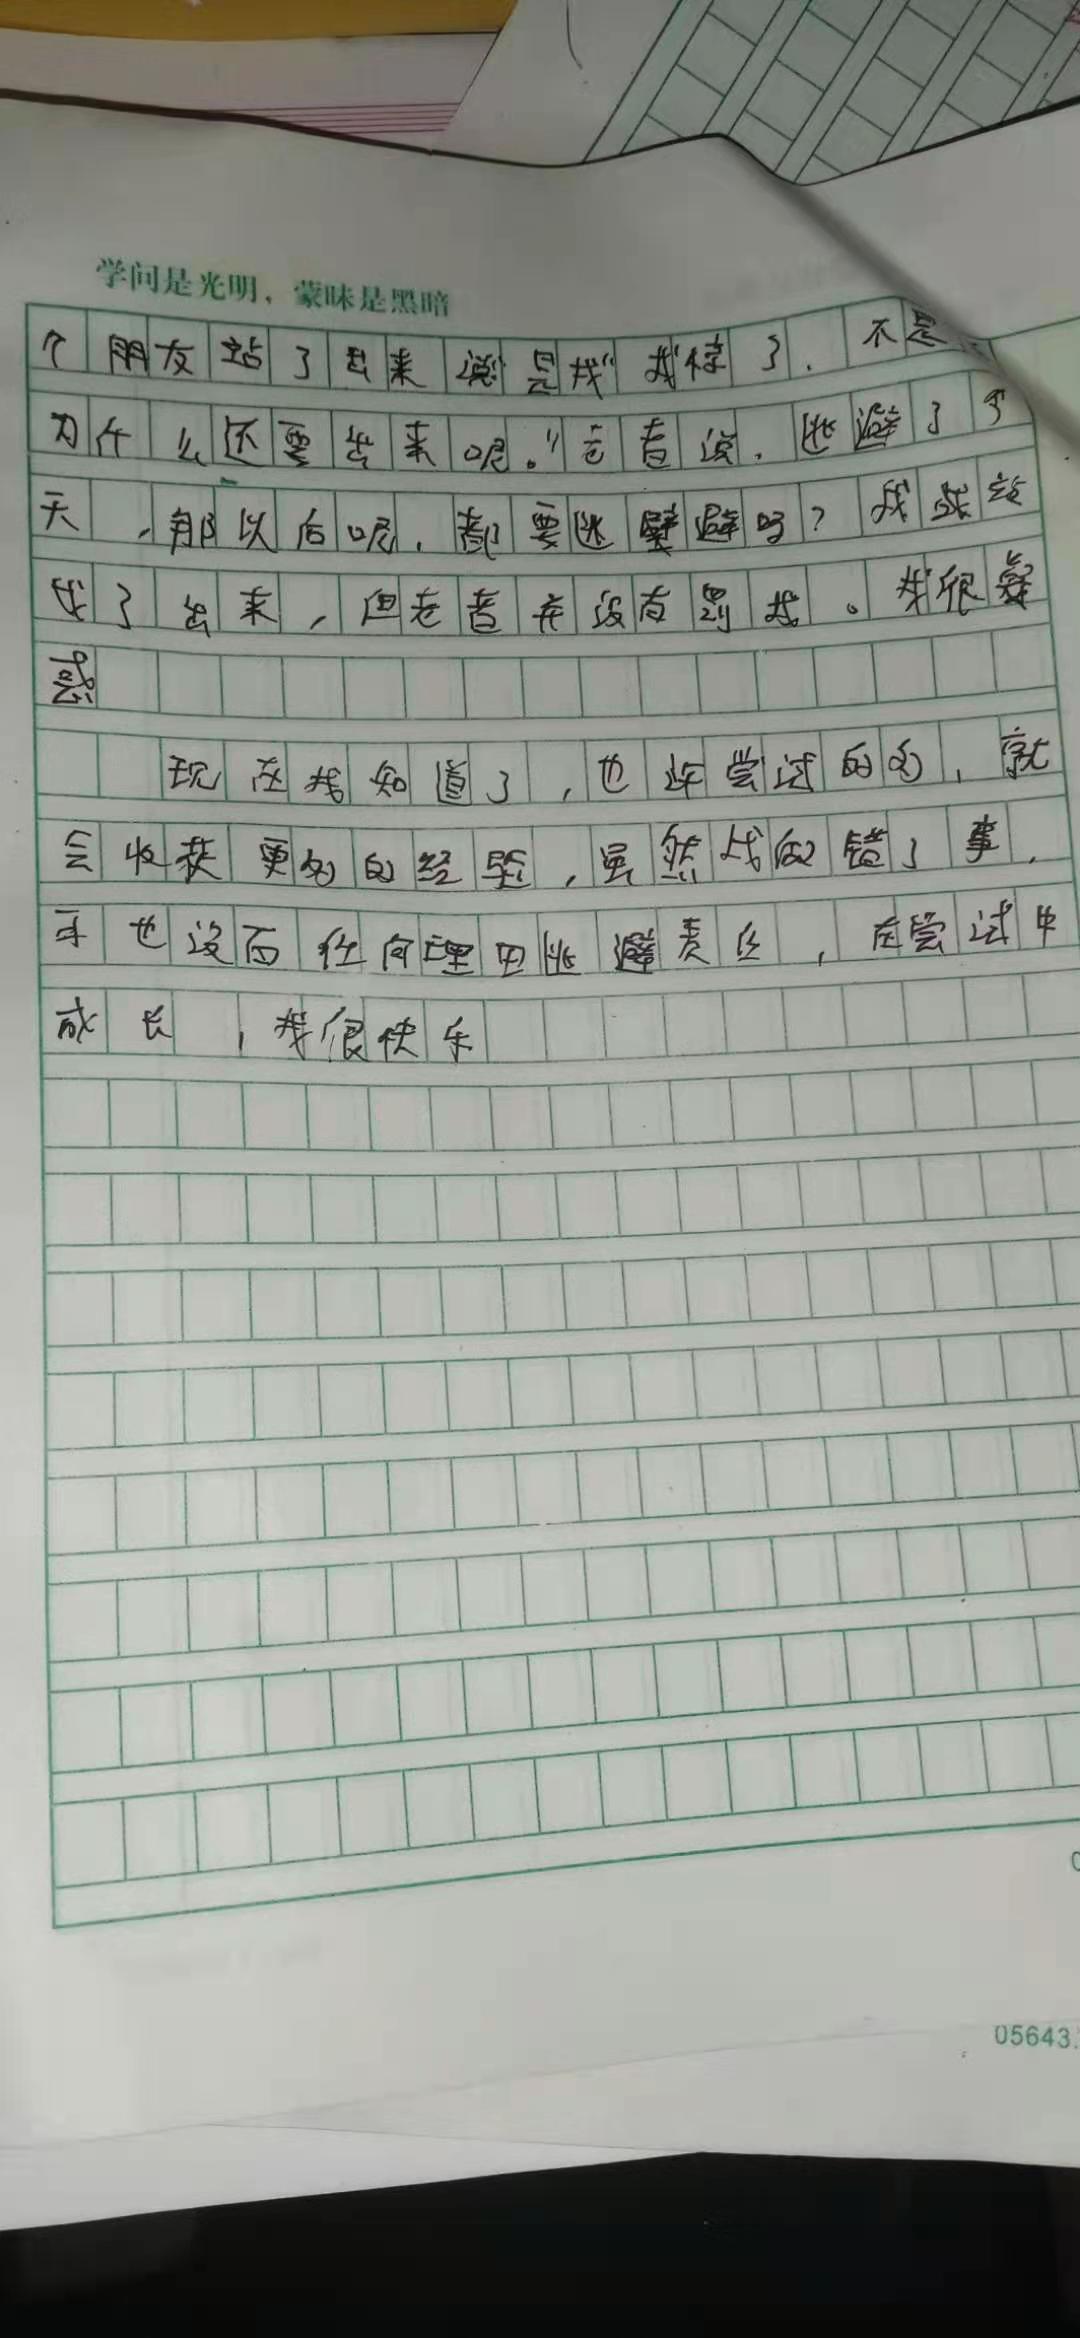 学问是光明，蒙昧是黑暗
个朋友站了出来说是找我样了，不是
为什么还要出来呢。"老者说，逃避了今
天，那以后呢，都要逃避吗？我战
找了出来，但老者并没有罚我。我很疑
惑
现在我知道了，也许尝试的多，就
会收获更多的经验，虽然我做错了事，
可也没有任何理由逃避责任，在尝试中
成长，我很快乐
05643.